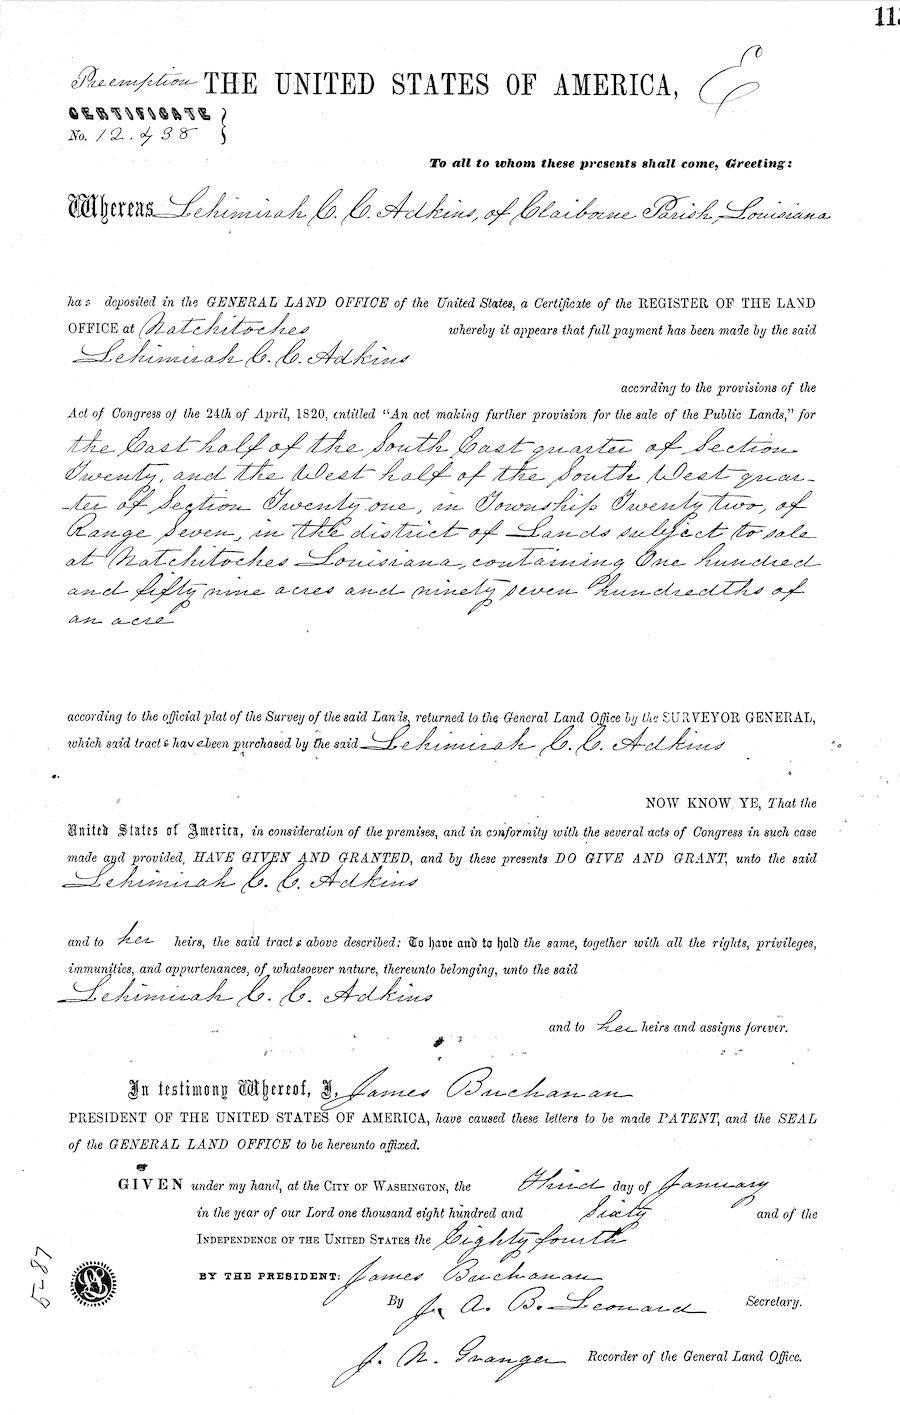 113
Preemption THE UNITED STATES OF AMERICA, E
CERTIFICATE
No. 12.438
To all to whom these presents shall come, Greeting:
Whereas Lehimirah C. C. Adkins, of Claiborne Parish, Louisiana
has deposited in the GENERAL LAND OFFICE of the United States, a Certificate of the REGISTER OF THE LAND
OFFICE at Natchitoches whereby it appears that full payment has been made by the said
Lehimirah C. C. Adkins
according to the provisions of the
Act of Congress of the 24th of April, 1820, entitled "An act making further provision for the sale of the Public Lands," for
the East half of the South East quarter of Section
Twenty, and the West half of the South West quar-
-ter of Section Twenty one, in Township Twenty two, of
Range Seven, in the district of Lands subject to sale
at Natchitoches Louisiana, containing One hundred
and fifty nine acres and ninety seven hundredths of
an acre
according to the official plat of the Survey of the said Lands, returned to the General Land Office by the SURVEYOR GENERAL,
which said tracts have been purchased by the said Lehimirah C. C. Adkins
NOW KNOW YE, That the
United States of America, in consideration of the premises, and in conformity with the several acts of Congress in such case
made and provided, HAVE GIVEN AND GRANTED, and by these presents DO GIVE AND GRANT, unto the said
Lehimirah C. C. Adkins
and to her heirs, the said tracts above described: To have and to hold the same, together with all the rights, privileges,
immunities, and appurtenances, of whatsoever nature, thereunto belonging, unto the said
Lehimirah C. C. Adkins
and to her heirs and assigns forever.
In testimony Whereof, I, James Buchanan
PRESIDENT OF THE UNITED STATES OF AMERICA, have caused these letters to be made PATENT, and the SEAL
of the GENERAL LAND OFFICE to be hereunto affixed.
GIVEN under my hand, at the CITY OF WASHINGTON, the Third day of January
in the year of our Lord one thousand eight hundred and Sixty and of the
INDEPENDENCE OF THE UNITED STATES the Eighty fourth
BY THE PRESIDENT: James Buchanan
By J. A. B. Leonard Secretary.
J. N. Granger Recorder of the General Land Office.
5-87
LS